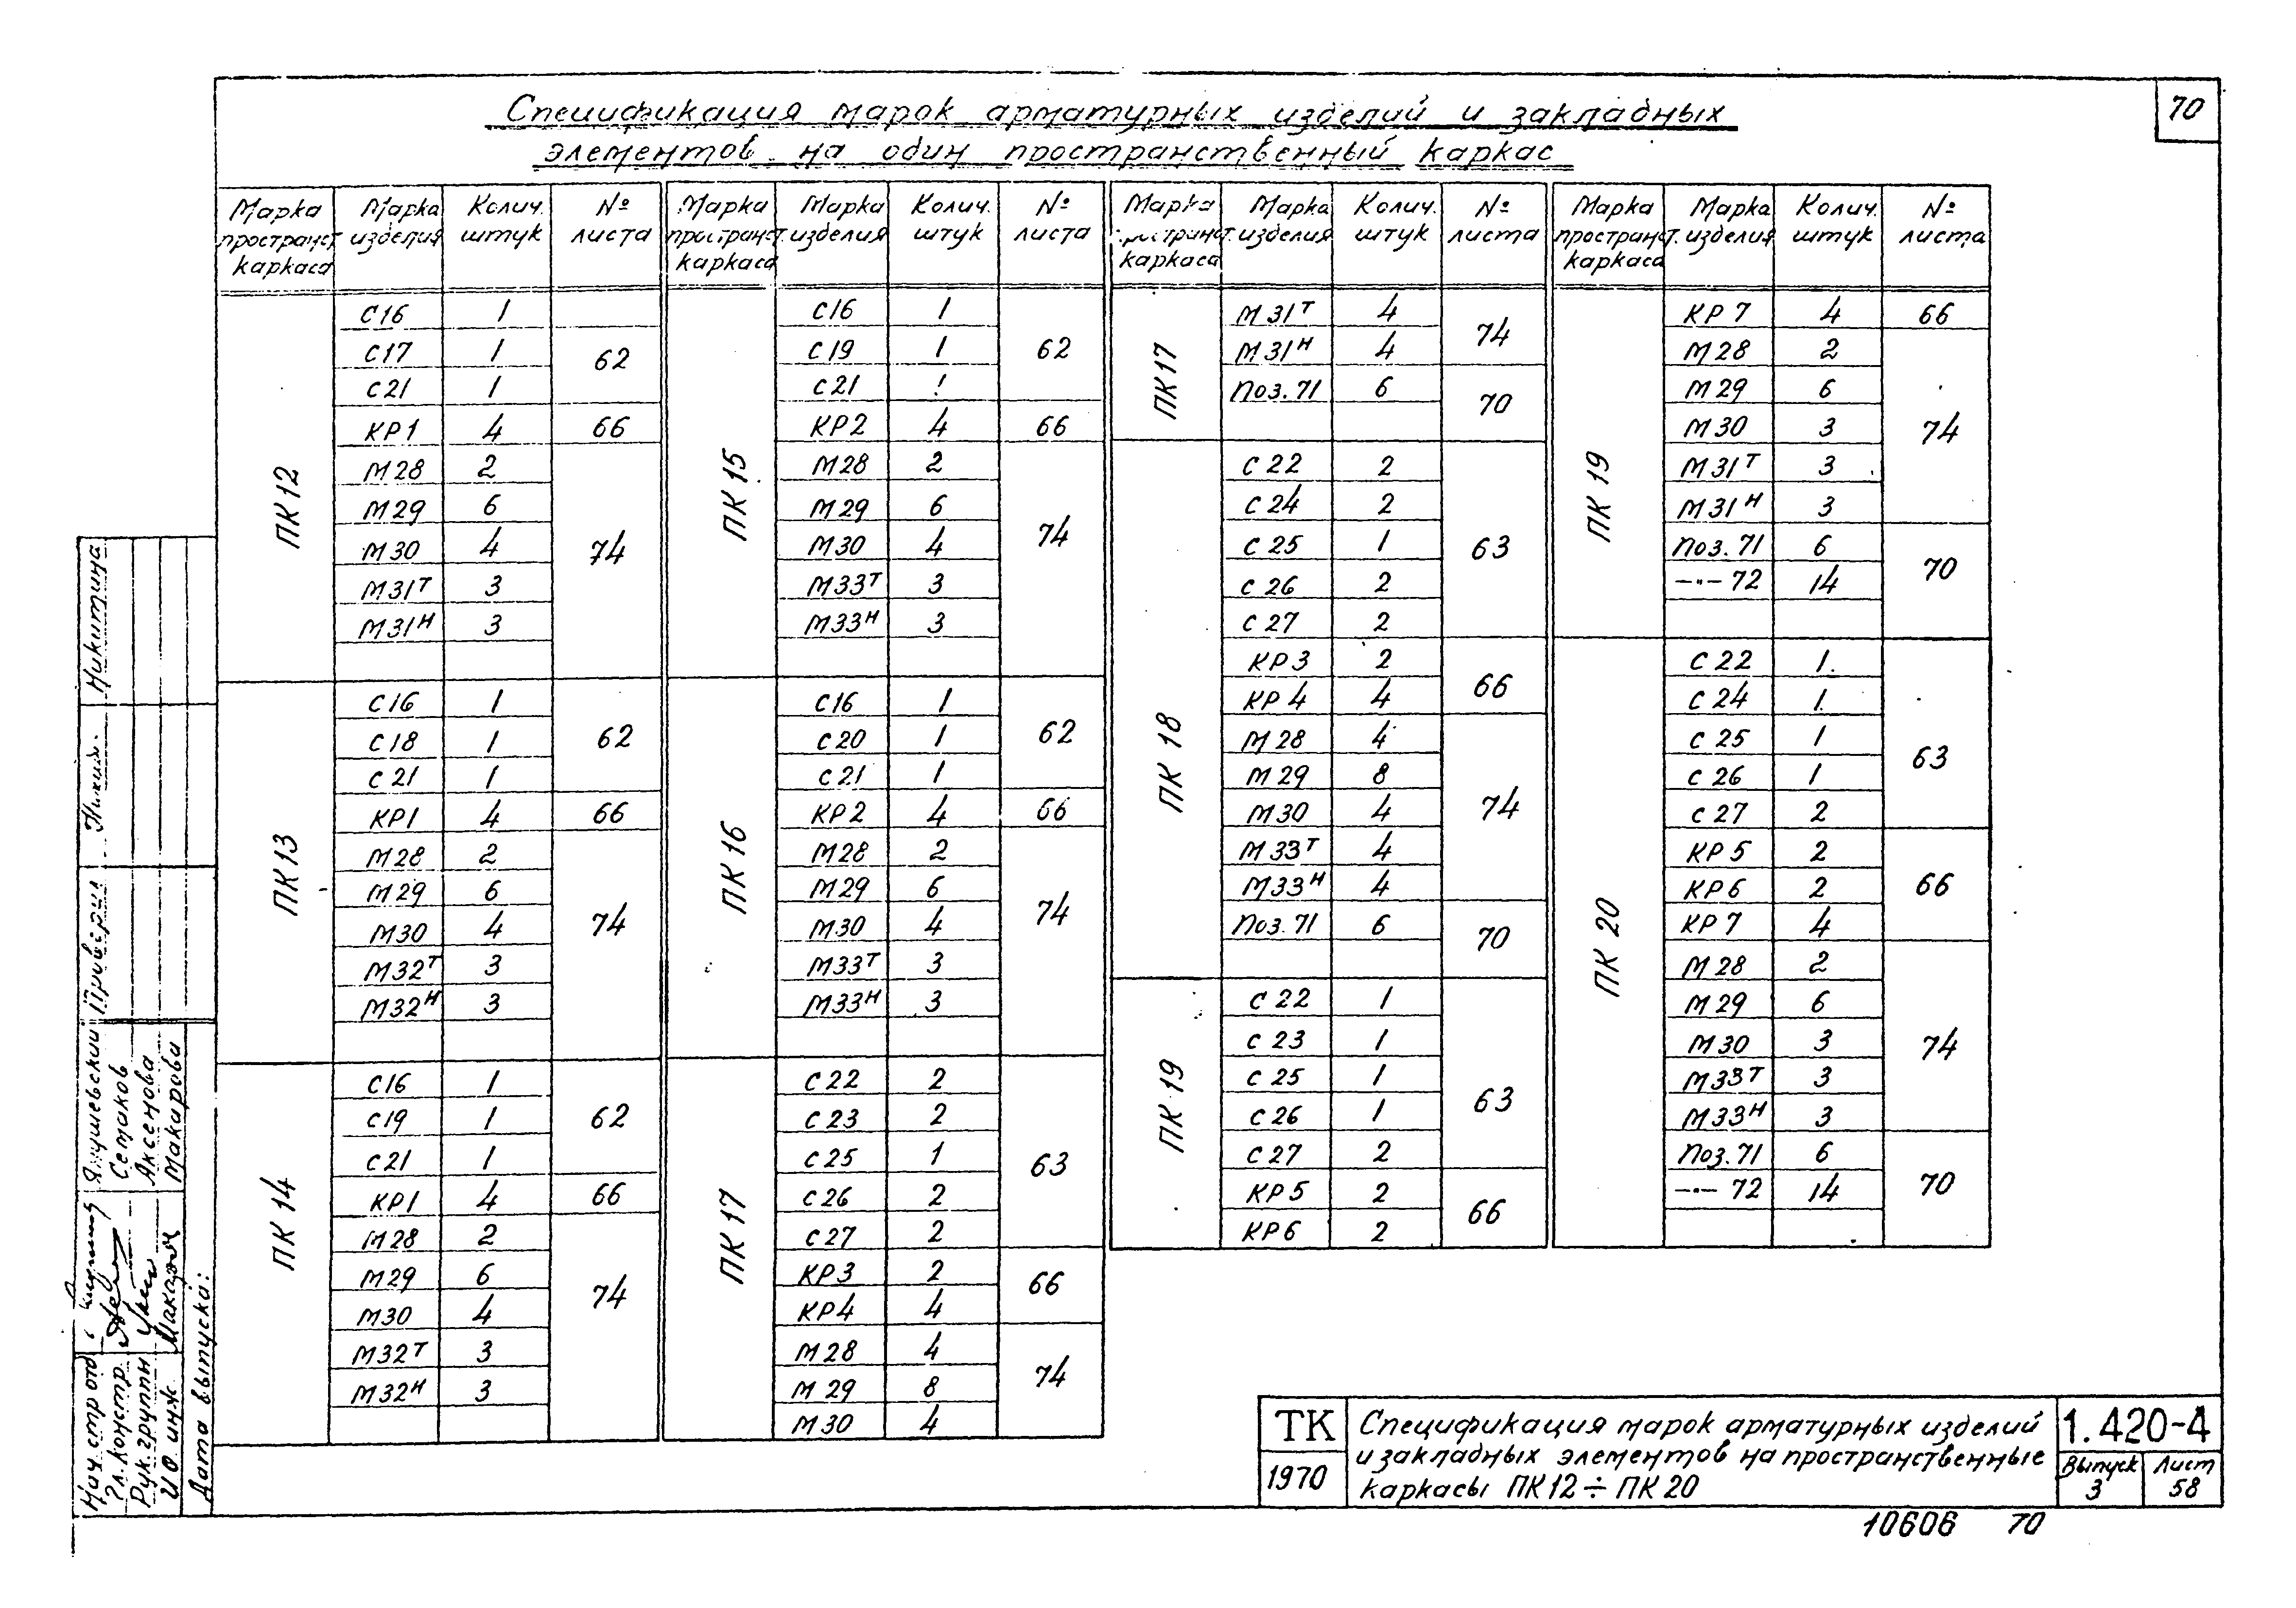 70
Спецификация марок арматурных изделий и закладных
элементов на один пространственный каркас
Марка пространст. каркаса | Марка изделия | Колич. штук | № листа
ПК 12
С16 1
С17 1 62
С21 1
КР1 4 66
М28 2
М29 6
М30 4 74
М31т 3
М31н 3
ПК 13
С16 1
С18 1 62
С21 1
КР1 4 66
М28 2
М29 6
М30 4 74
М32т 3
М32н 3
ПК 14
С16 1
С19 1 62
С21 1
КР1 4 66
М28 2
М29 6
М30 4 74
М32т 3
М32н 3
Марка пространст. каркаса | Марка изделия | Колич. штук | № листа
ПК 15
С16 1
С19 1 62
С21 1
КР2 4 66
М28 2
М29 6
М30 4 74
М33т 3
М33н 3
ПК 16
С16 1
С20 1 62
С21 1
КР2 4 66
М28 2
М29 6
М30 4 74
М33т 3
М33н 3
ПК 17
С22 2
С23 2
С25 1 63
С26 2
С27 2
КР3 2 66
КР4 4
М28 4
М29 8 74
М30 4
Марка пространст. каркаса | Марка изделия | Колич. штук | № листа
ПК 17
М31т 4 74
М31н 4
Поз. 71 6 70
ПК 18
С22 2
С24 2
С25 1 63
С26 2
С27 2
КР3 2 66
КР4 4
М28 4
М29 8
М30 4 74
М33т 4
М33н 4
Поз. 71 6 70
ПК 19
С22 1
С23 1
С25 1 63
С26 1
С27 2
КР5 2 66
КР6 2
Марка пространст. каркаса | Марка изделия | Колич. штук | № листа
ПК 19
КР7 4 66
М28 2
М29 6
М30 3 74
М31т 3
М31н 3
Поз. 71 6 70
—"— 72 14
ПК 20
С22 1
С24 1
С25 1 63
С26 1
С27 2
КР5 2
КР6 2 66
КР7 4
М28 2
М29 6
М30 3 74
М33т 3
М33н 3
Поз. 71 6 70
—"— 72 14
Нач. стр отд Янушевский Проверил Никитина
Гл. констр. Семаков
Рук. группы Аксенова
И О инж. Макарова
Дата выпуска:
ТК
1970
Спецификация марок арматурных изделий
и закладных элементов на пространственные
каркасы ПК 12 ÷ ПК 20
1.420-4
Выпуск 3
Лист 58
10606 70